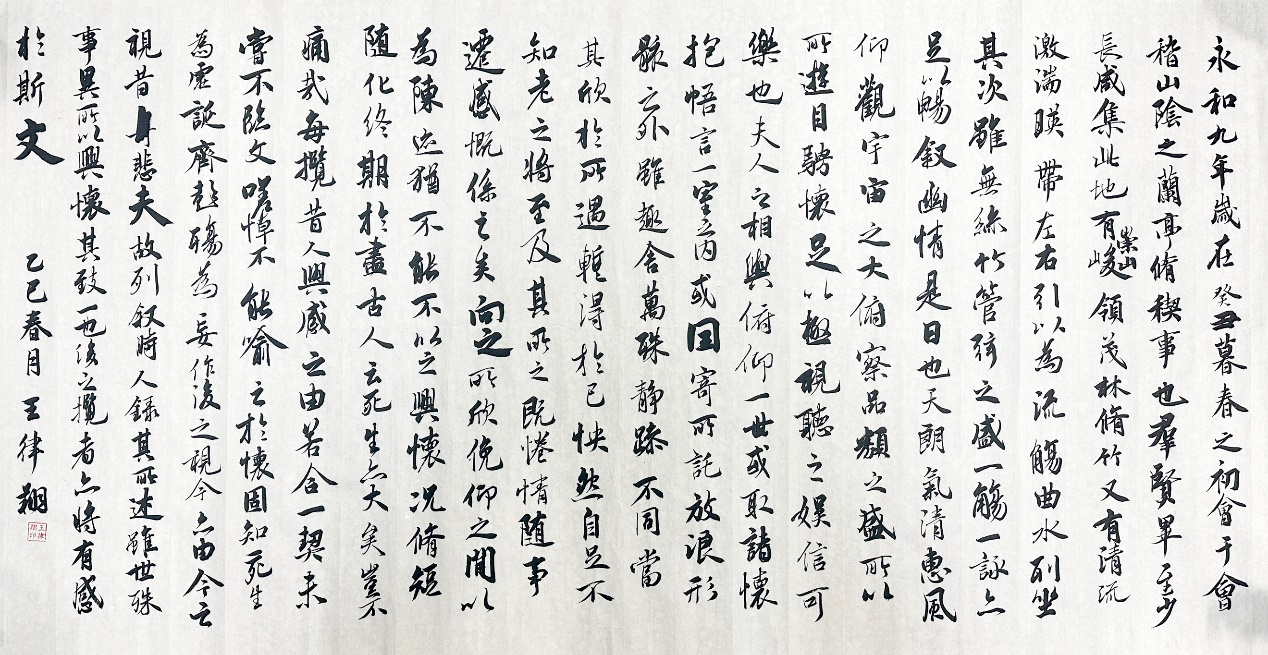 永和九年歲在癸丑暮春之初會于會
稽山陰之蘭亭脩稧事也群賢畢至少
長咸集此地有崇山峻領茂林脩竹又有清流
激湍暎帶左右引以為流觴曲水列坐
其次雖無絲竹管弦之盛一觴一詠亦
足以暢叙幽情是日也天朗氣清惠風
仰觀宇宙之大俯察品類之盛所以
所遊目騁懷足以極視聽之娛信可
樂也夫人之相與俯仰一世或取諸懷
抱悟言一室之內或因寄所託放浪形
骸之外雖趣舍萬殊静躁不同當
其欣於所遇暫得於己怏然自足不
知老之將至及其所之既惓情隨事
遷感慨係之矣向之所欣俛仰之間以
為陳迹猶不能不以之興懷況脩短
隨化終期於盡古人云死生亦大矣豈不
痛哉每攬昔人興感之由若合一契未
嘗不臨文嗟悼不能喻之於懷固知死生
為虛誕齊彭殤為妄作後之視今亦由今之
視昔悲夫故列叙時人錄其所述雖世殊
事異所以興懷其致一也後之攬者亦將有感
於斯文 乙巳春月 王律翔